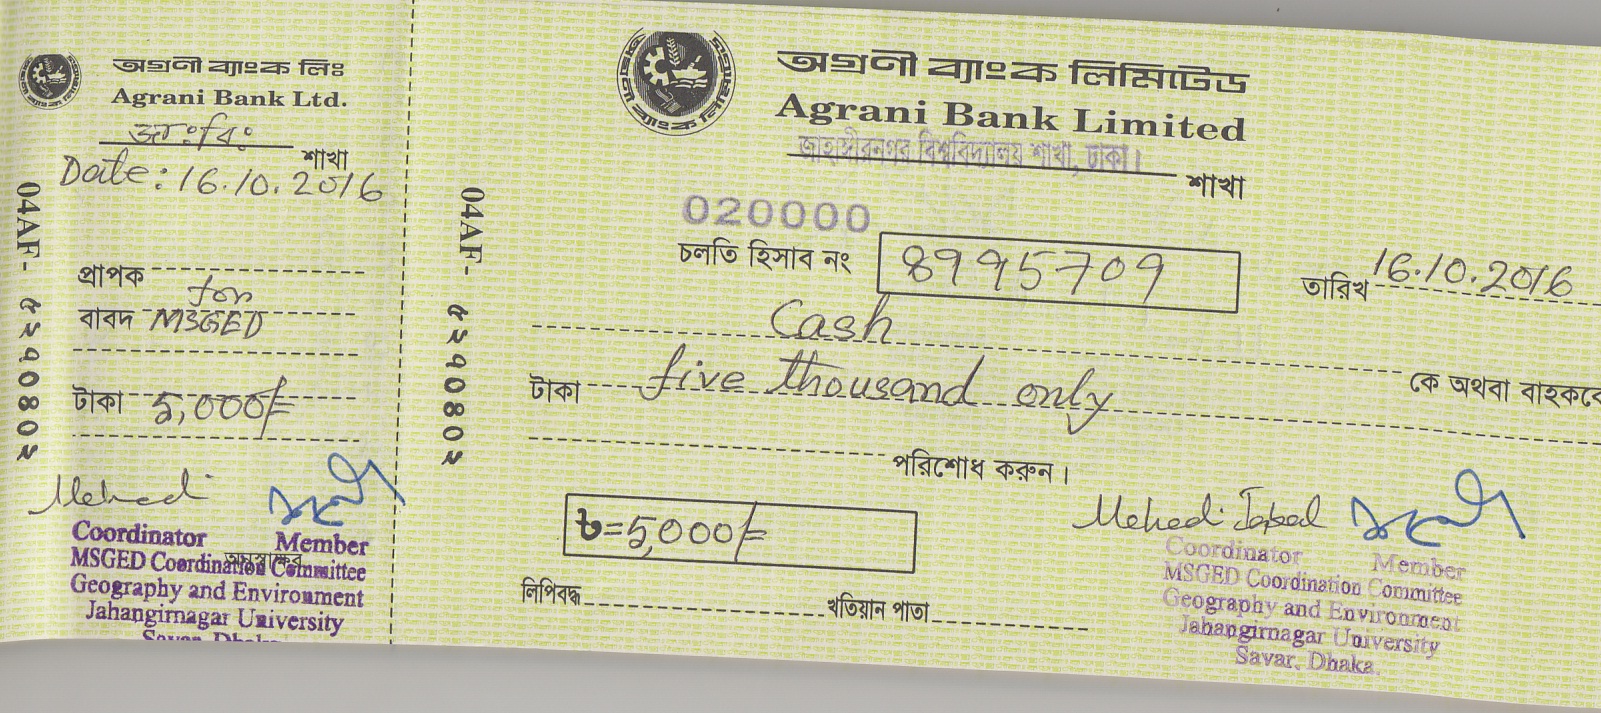 অগ্রণী ব্যাংক লিঃ
Agrani Bank Ltd.
জাঃবিঃ শাখা
Date: 16.10.2016
04AF- ৫২৭০৪০২
প্রাপক
for
বাবদ MSGED
টাকা 5,000/=
Mehedi
Coordinator Member
MSGED Coordination Committee
Geography and Environment
Jahangirnagar University
Savar, Dhaka
অগ্রণী ব্যাংক লিমিটেড
Agrani Bank Limited
জাহাঙ্গীরনগর বিশ্ববিদ্যালয় শাখা, ঢাকা।
শাখা
04AF- ৫২৭০৪০২
020000
চলতি হিসাব নং 8995709
তারিখ 16.10.2016
Cash
কে অথবা বাহককে
টাকা five thousand only
পরিশোধ করুন।
৳=5,000/=
Mehedi Iqbal
লিপিবদ্ধ খতিয়ান পাতা
Coordinator Member
MSGED Coordination Committee
Geography and Environment
Jahangirnagar University
Savar, Dhaka.